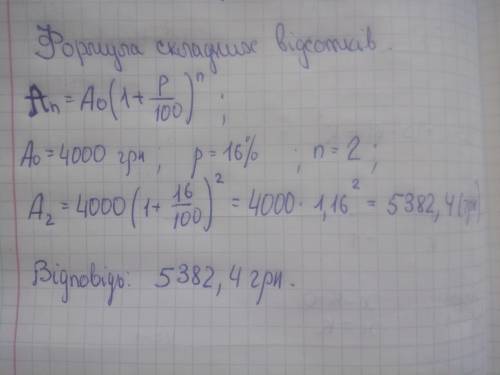 Формула складних відсотків.
Aₙ = A₀(1 + p/100)ⁿ ;
A₀ = 4000 грн ; p = 16% ; n = 2 ;
A₂ = 4000(1 + 16/100)² = 4000 · 1,16² = 5382,4 (грн)
Відповідь: 5382,4 грн.